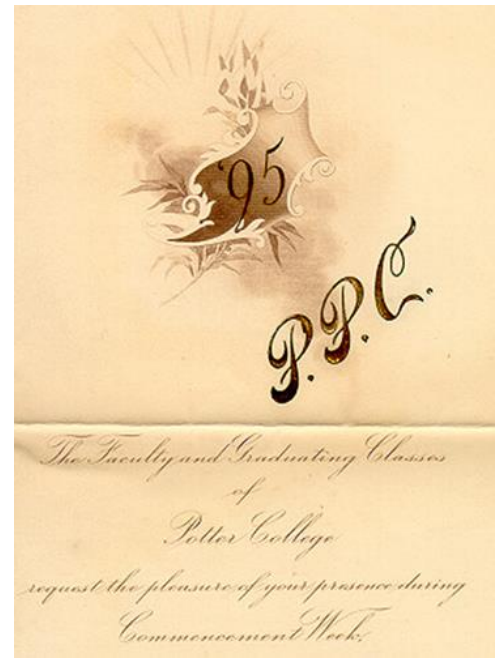 '95
P.P.C.
The Faculty and Graduating Classes
of
Potter College
request the pleasure of your presence during
Commencement Week.